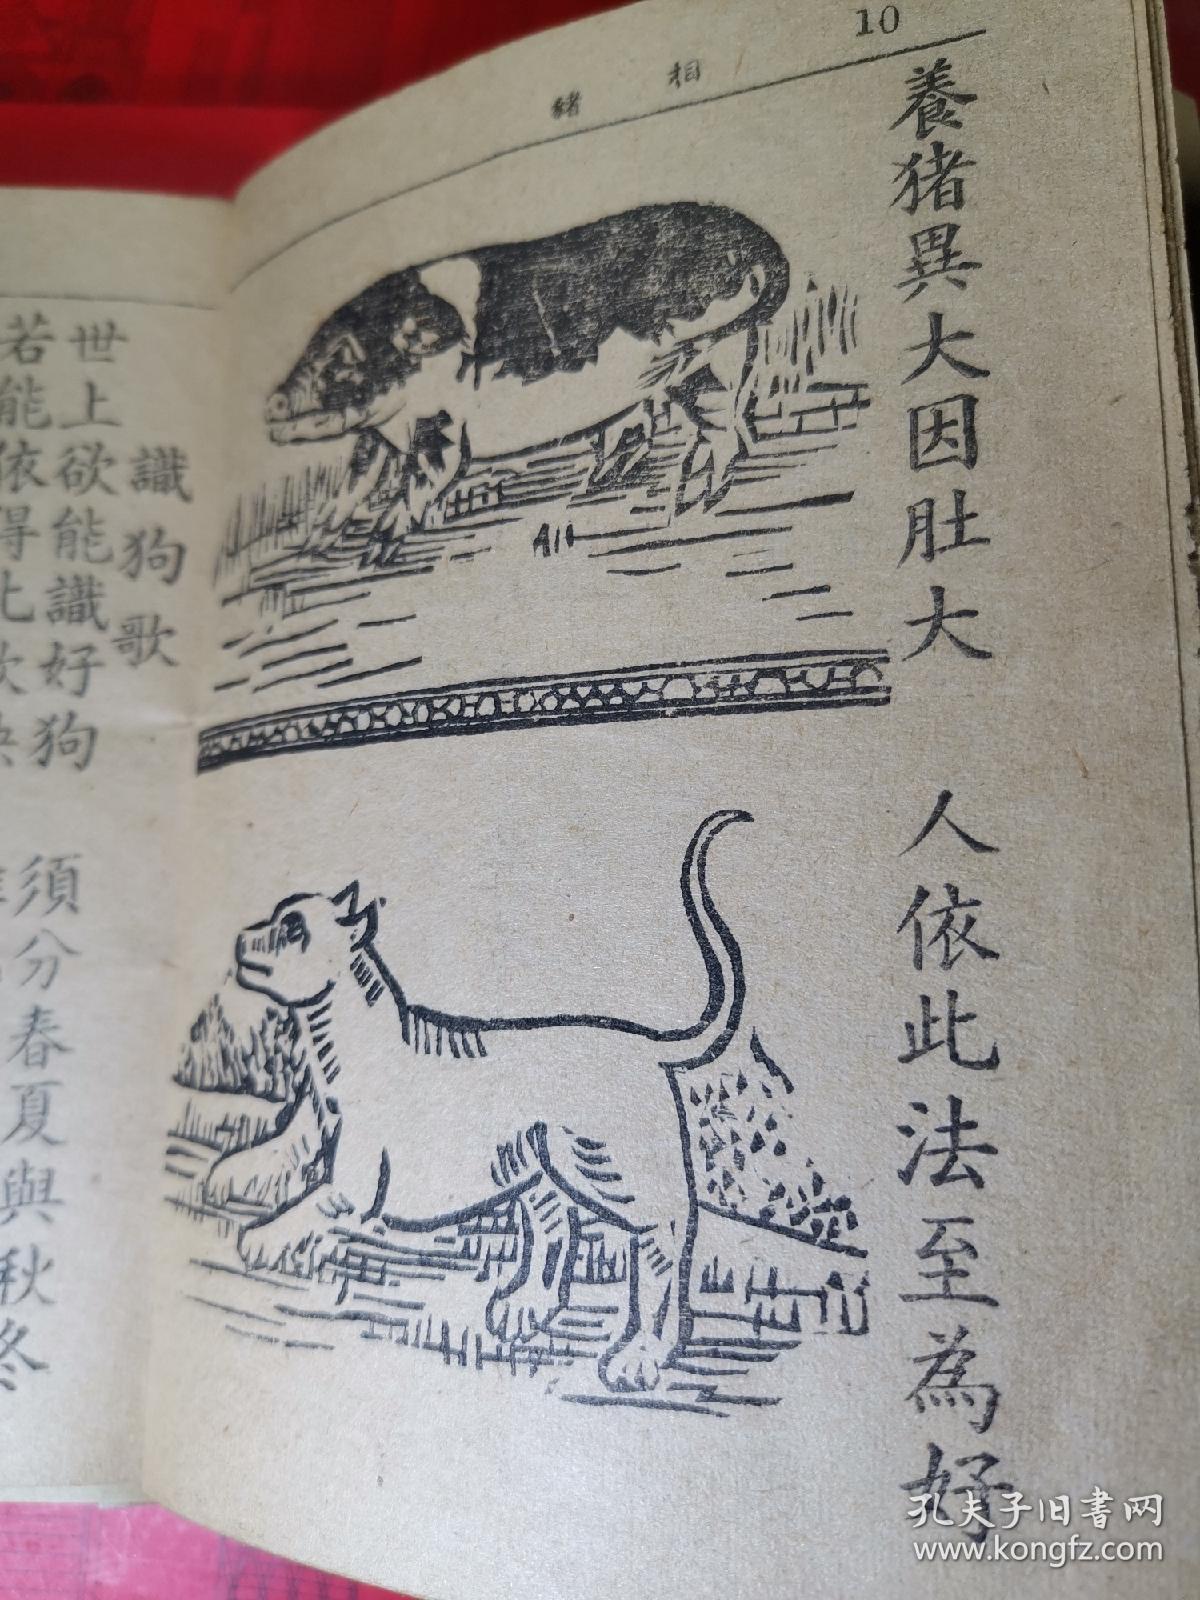 10
相豬
養猪異大因肚大 人依此法至為好
識狗歌
世上欲能識好狗 須分春夏與秋冬
若能依得此歌
孔夫子旧书网
www.kongfz.com